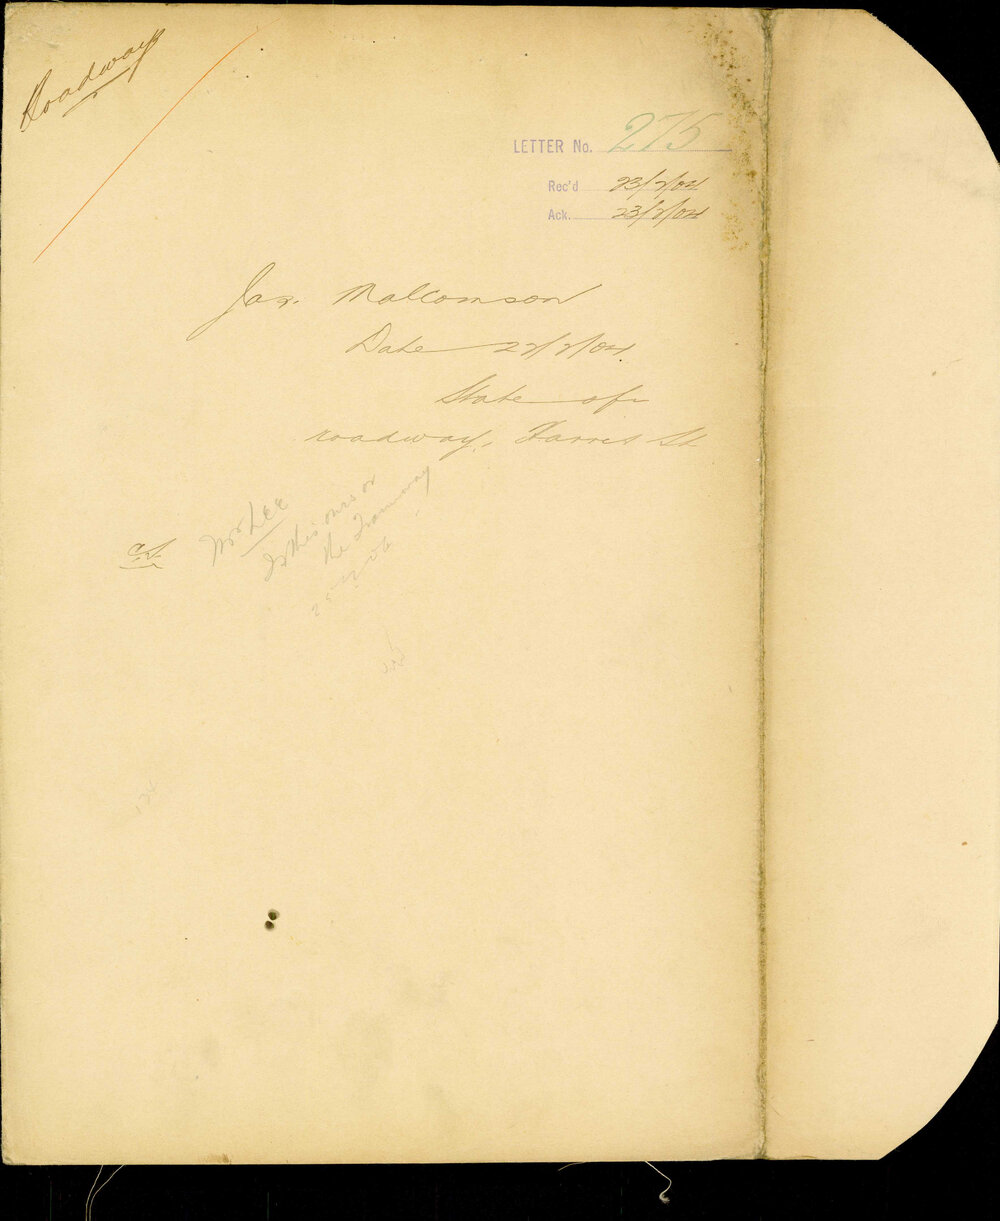 Roadway
LETTER No. 275
Rec'd 23/2/04
Ack. 23/2/04
Jas. Malcomson
Date 22/2/04
State of
roadway, Harris St
Mr Lee
Is this ours or
the Tramway